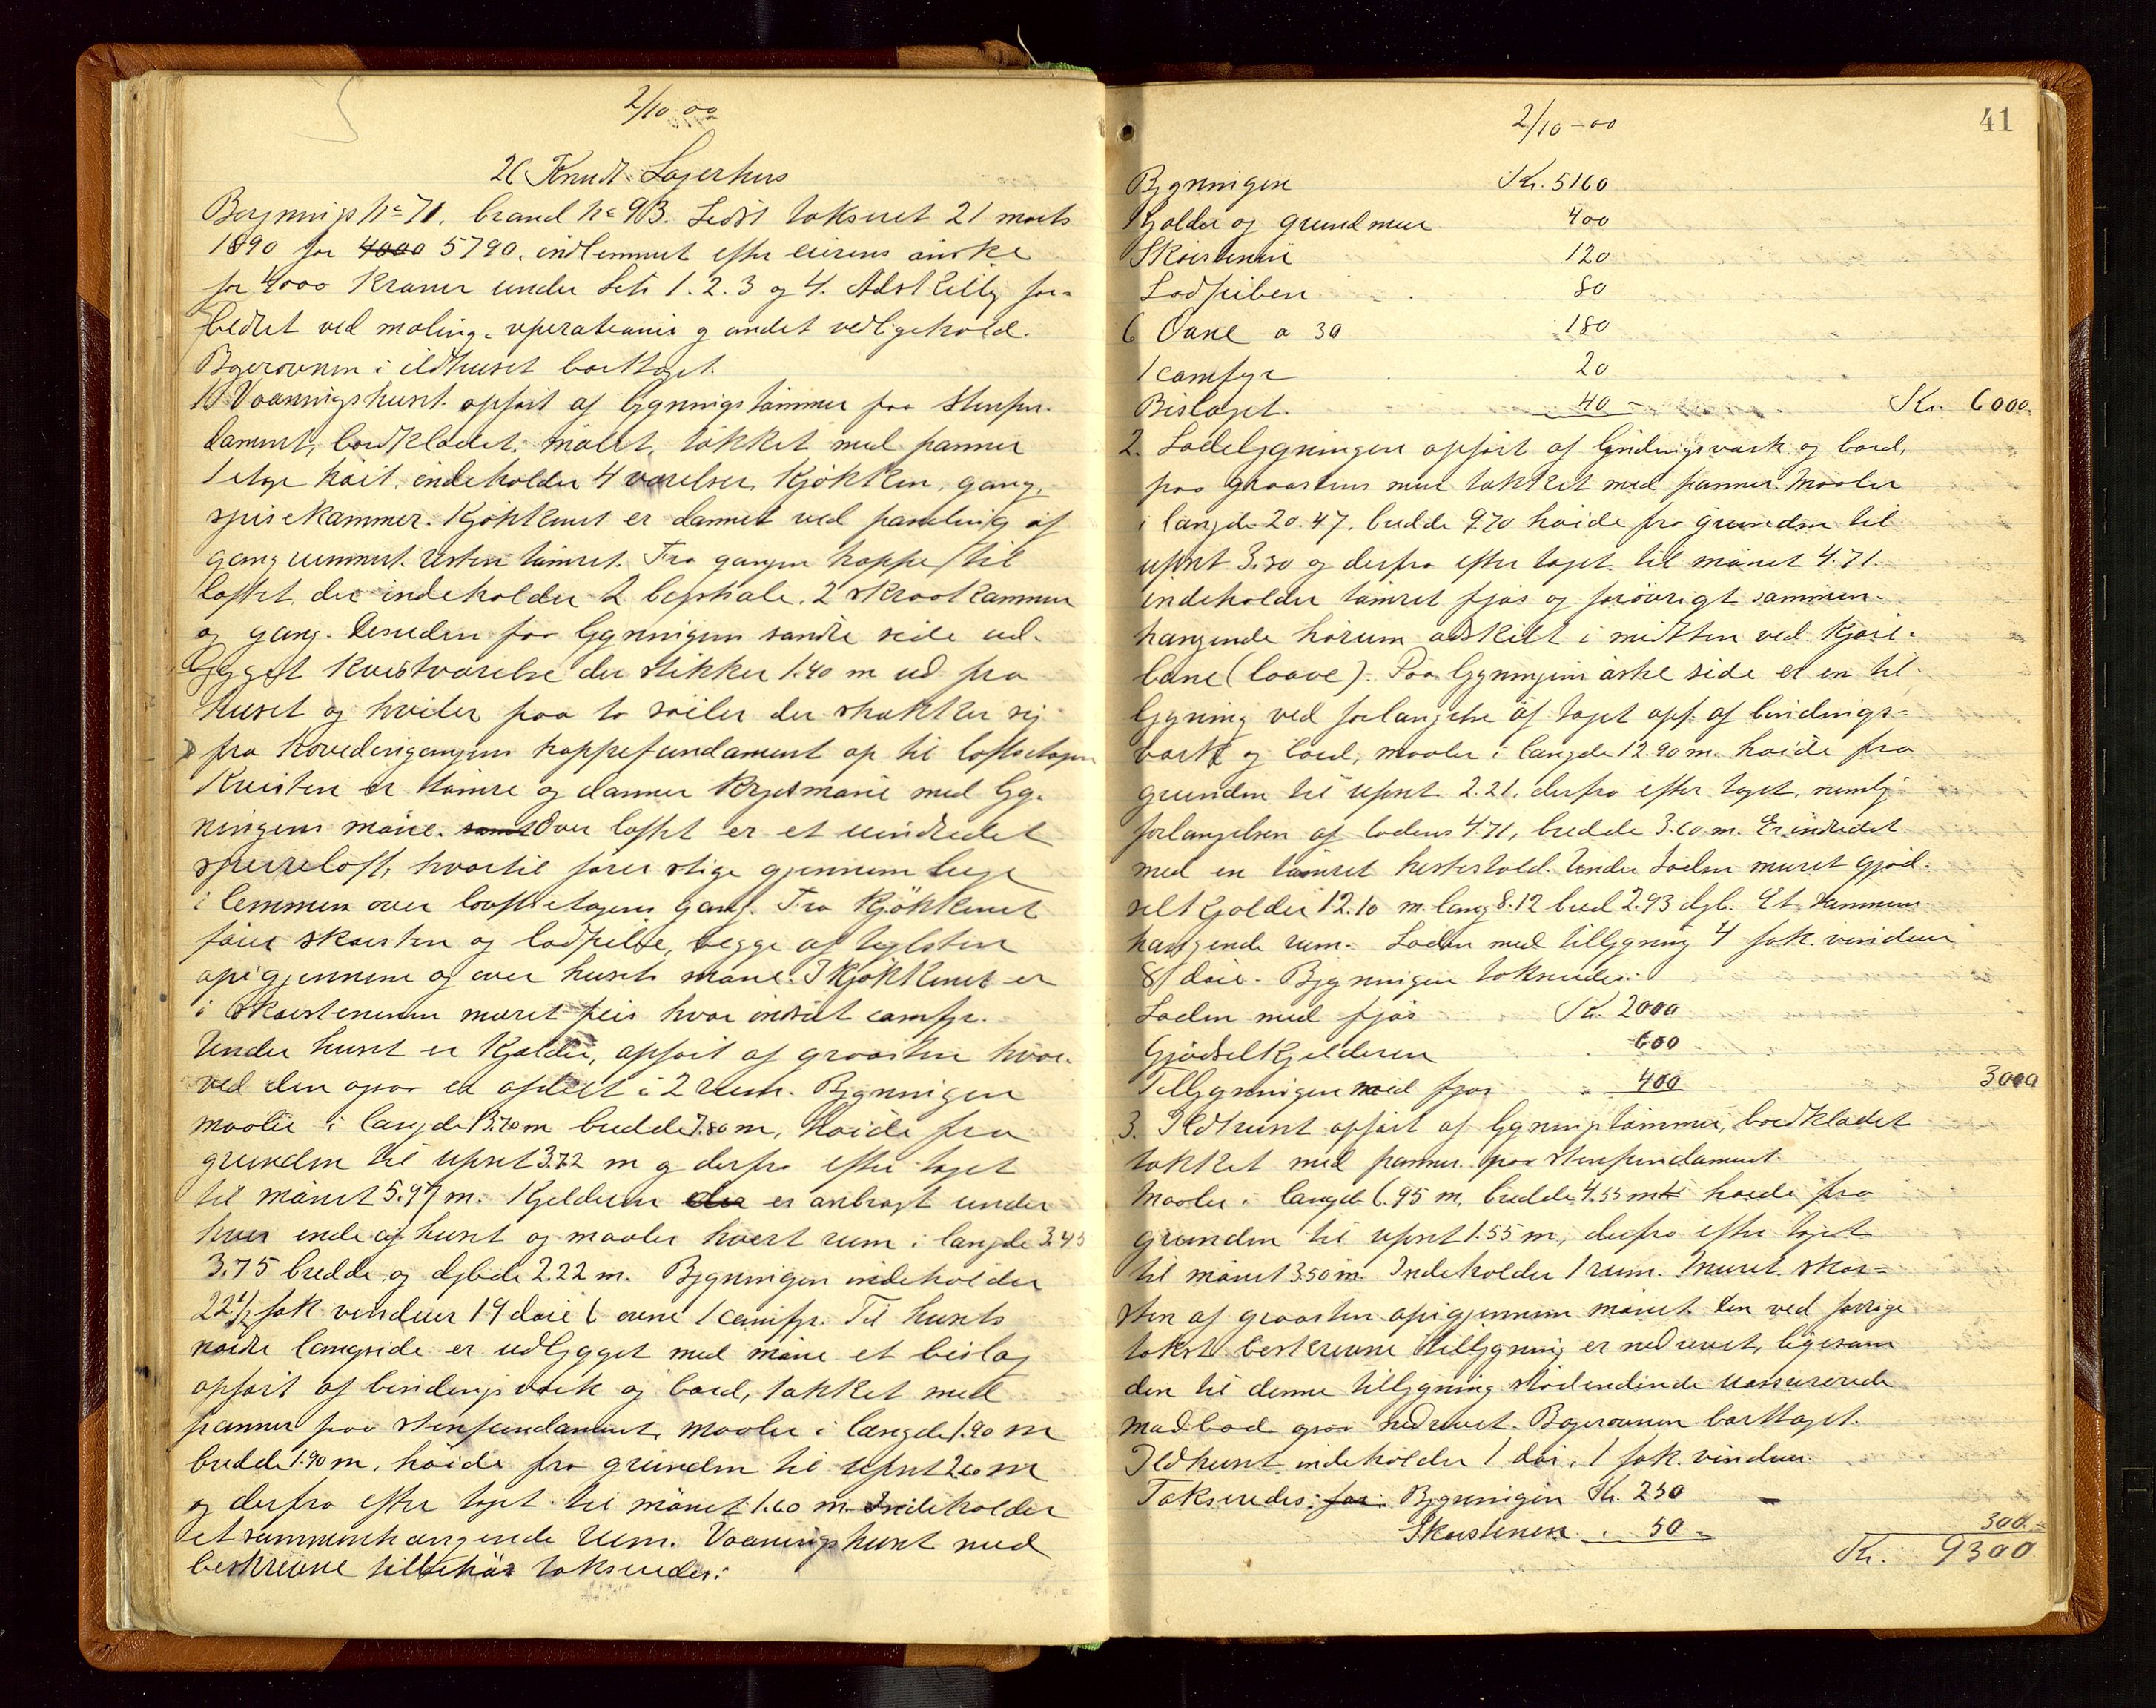 2/10-00
26 Knudt Lagerhus
Bygnings No 71, brand No 93. Sidst takseret 21 marts
1890 for 4000 5790, indlemmet efter eierens ønske
for 4000 kroner under Litr 1. 2. 3 og 4. Adskillig for-
bedret ved maling, reparationer og andet vedligehold.
Bagerovnen i ildhuset borttaget.
1) Vaaningshuset opført af bygningstømmer paa stenfun-
dament, bordklædet, malet, tækket med panner
1 etage høit, indeholder 4 værelser, kjøkken, gang,
spisekammer. Kjøkkenet er dannet ved paneling af
gangrummet. Resten tømret. Fra gangen trappe til
loftet der indeholder 2 bepsale, 2 skraakammer
og gang. Desuden paa bygningens søndre side ud-
bygget kvistværelse der stikker 1.40 m ud fra
huset og hviler paa to søiler der strækker sig
fra hovedingangens trappefundament op til loftsetagen
Kvisten er tømre og danner krydsmøne med byg-
ningens møne. samt Over loftet er et uindredet
sperreloft, hvortil fører stige gjennem luge
i lemmen over loftsetagens gang. Fra kjøkkenet
fører skorsten og lodpibe, begge af teglsten
op igjennem og over husets møne. I kjøkkenet er
i skorstenene muret peis hvor indsat comfyr.
Under huset er kjælder, opført af graasten hvor-
ved den ogsaa er opdelt i 2 rum. Bygningen
maaler i længde 13.70 m bredde 7.80 m, høide fra
grunden til ufset 3.72 m og derfra efter taget
til mønet 5.97 m. Kjelderen der er anbragt under
hver ende af huset og maaler hvert rum i længde 3.45
3.75 bredde og dybde 2.22 m. Bygningen indeholder
22 1/2 fak vinduer 19 døre 6 ovne 1 comfyr. Til husets
nordre langside er udbygget med møne et bislag
opført af bindingsværk og bord, tækket med
panner paa stenfundament, maaler i længde 1.90 m
bredde 1.90 m, høide fra grunden til ufset 2.60 m
og derfra efter taget til mønet 1.60 m. Indeholder
et sammenhængende rum. Vaaningshuset med
beskrevne tilbehør takseredes:
41
2/10-00
Bygningen Kr. 5160
Kjælder og grundmur 400
Skorstenen 120
Lodpiben 80
6 Ovne a 30 180
1 comfyr 20
Bislaget 40 - Kr. 6000.
2. Ladebygningen opført af bindingsværk og bord,
paa graastens mur tækket med panner. Maaler
i længde 20.47, bredde 9.70 høide fra grunden til
ufset 3.30 og derfra efter taget til mønet 4.71.
indeholder tømret fjøs og forøvrigt sammen-
hængende hørum adskilt i midten ved kjøre-
bane (laave). Paa bygningens østre side er en til-
bygning ved forlængelse af taget opf. af bindings-
værk og bord, maaler i længde 12.90 m. høide fra
grunden til ufset 2.21. derfra efter taget, nemlig
forlængelsen af ladens 4.71, bredde 3.60 m. Er indredet
med en tømret hestestald. Under Laden muret gjød-
selkjælder 12.10 m. lang 8.12 bred 2.93 dyb. Et sammen-
hængende rum. Laden med tilbygning 4 fak. vinduer
8 døre. Bygningen takseredes:
Laden med fjøs Kr. 2000
Gjødselkjelderen 600
Tilbygningen med fjøs 400 3000
3. Ildhuset opført af bygningstømmer, bordklædet
tækket med panner paa stenfundament.
Maaler i længde 6.95 m, bredde 4.55 m høide fra
grunden til ufset 1.55 m, derfra efter taget
til mønet 3.50 m. Indeholder 1 rum. Muret skor-
sten af graasten op igjennem mønet. Den ved forrige
takst beskrevne tilbygning er nedrevet, ligesom
den til denne tilbygning stødendende uassurerede
madbod ogsaa nedrevet. Bagerovnen borttaget.
Ildhuset indeholder 1 dør, 1 fak. vinduer.
Takseredes: for: Bygningen Kr. 250
Skorstenen 50 - 300 -
Kr. 9300